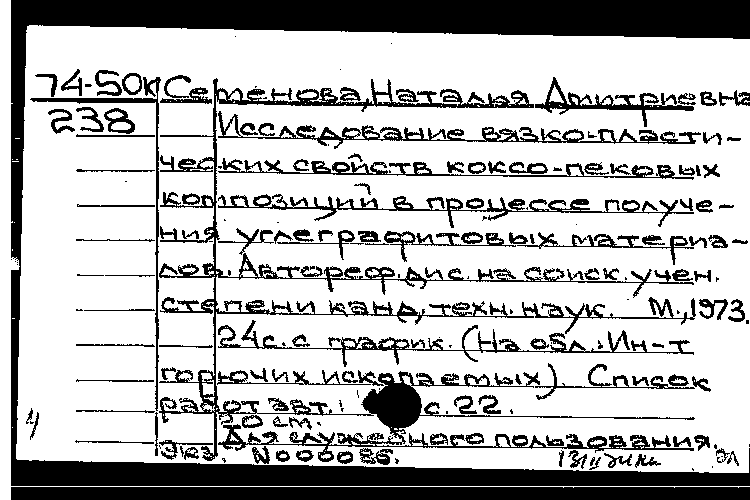 74-50к Семенова, Наталья Дмитриевна
238 Исследование вязко-пласти-
ческих свойств коксо-пековых
композиций в процессе получе-
ния углеграфитовых материа-
лов. Автореф. дис. на соиск. учен.
степени канд. техн. наук. М., 1973.
24с. с график. (На обл.: Ин-т
горючих ископаемых). Список
работ авт.: с. 22.
20 см.
Для служебного пользования.
Экз. N000086.